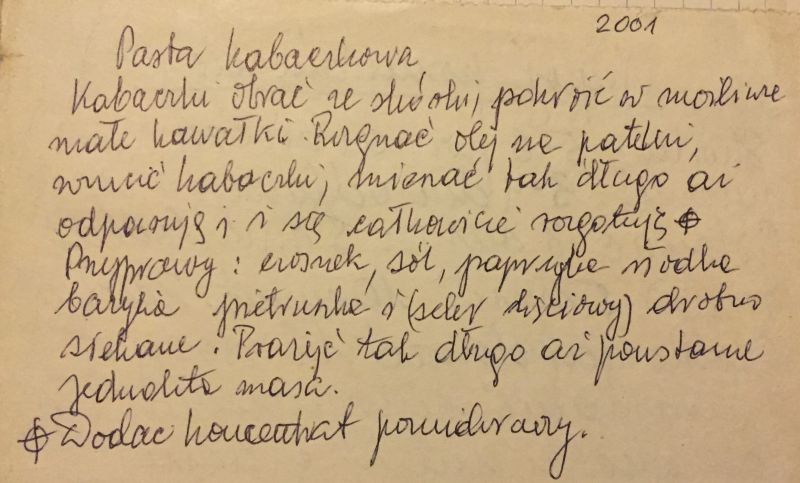 2001
Pasta kabaczkowa
Kabaczki obrać ze skórki, pokroić w możliwie
małe kawałki. Rozgrzać olej na patelni,
wrzucić kabaczki, mieszać tak długo aż
odparują i i się całkowicie rozgotują ⌽
Przyprawy: czosnek, sól, papryka słodka
bazylia pietruszka i (seler liściowy) drobno
siekane. Prażyć tak długo aż powstanie
jednolita masa.
⌽ Dodac koncentrat pomidorowy.